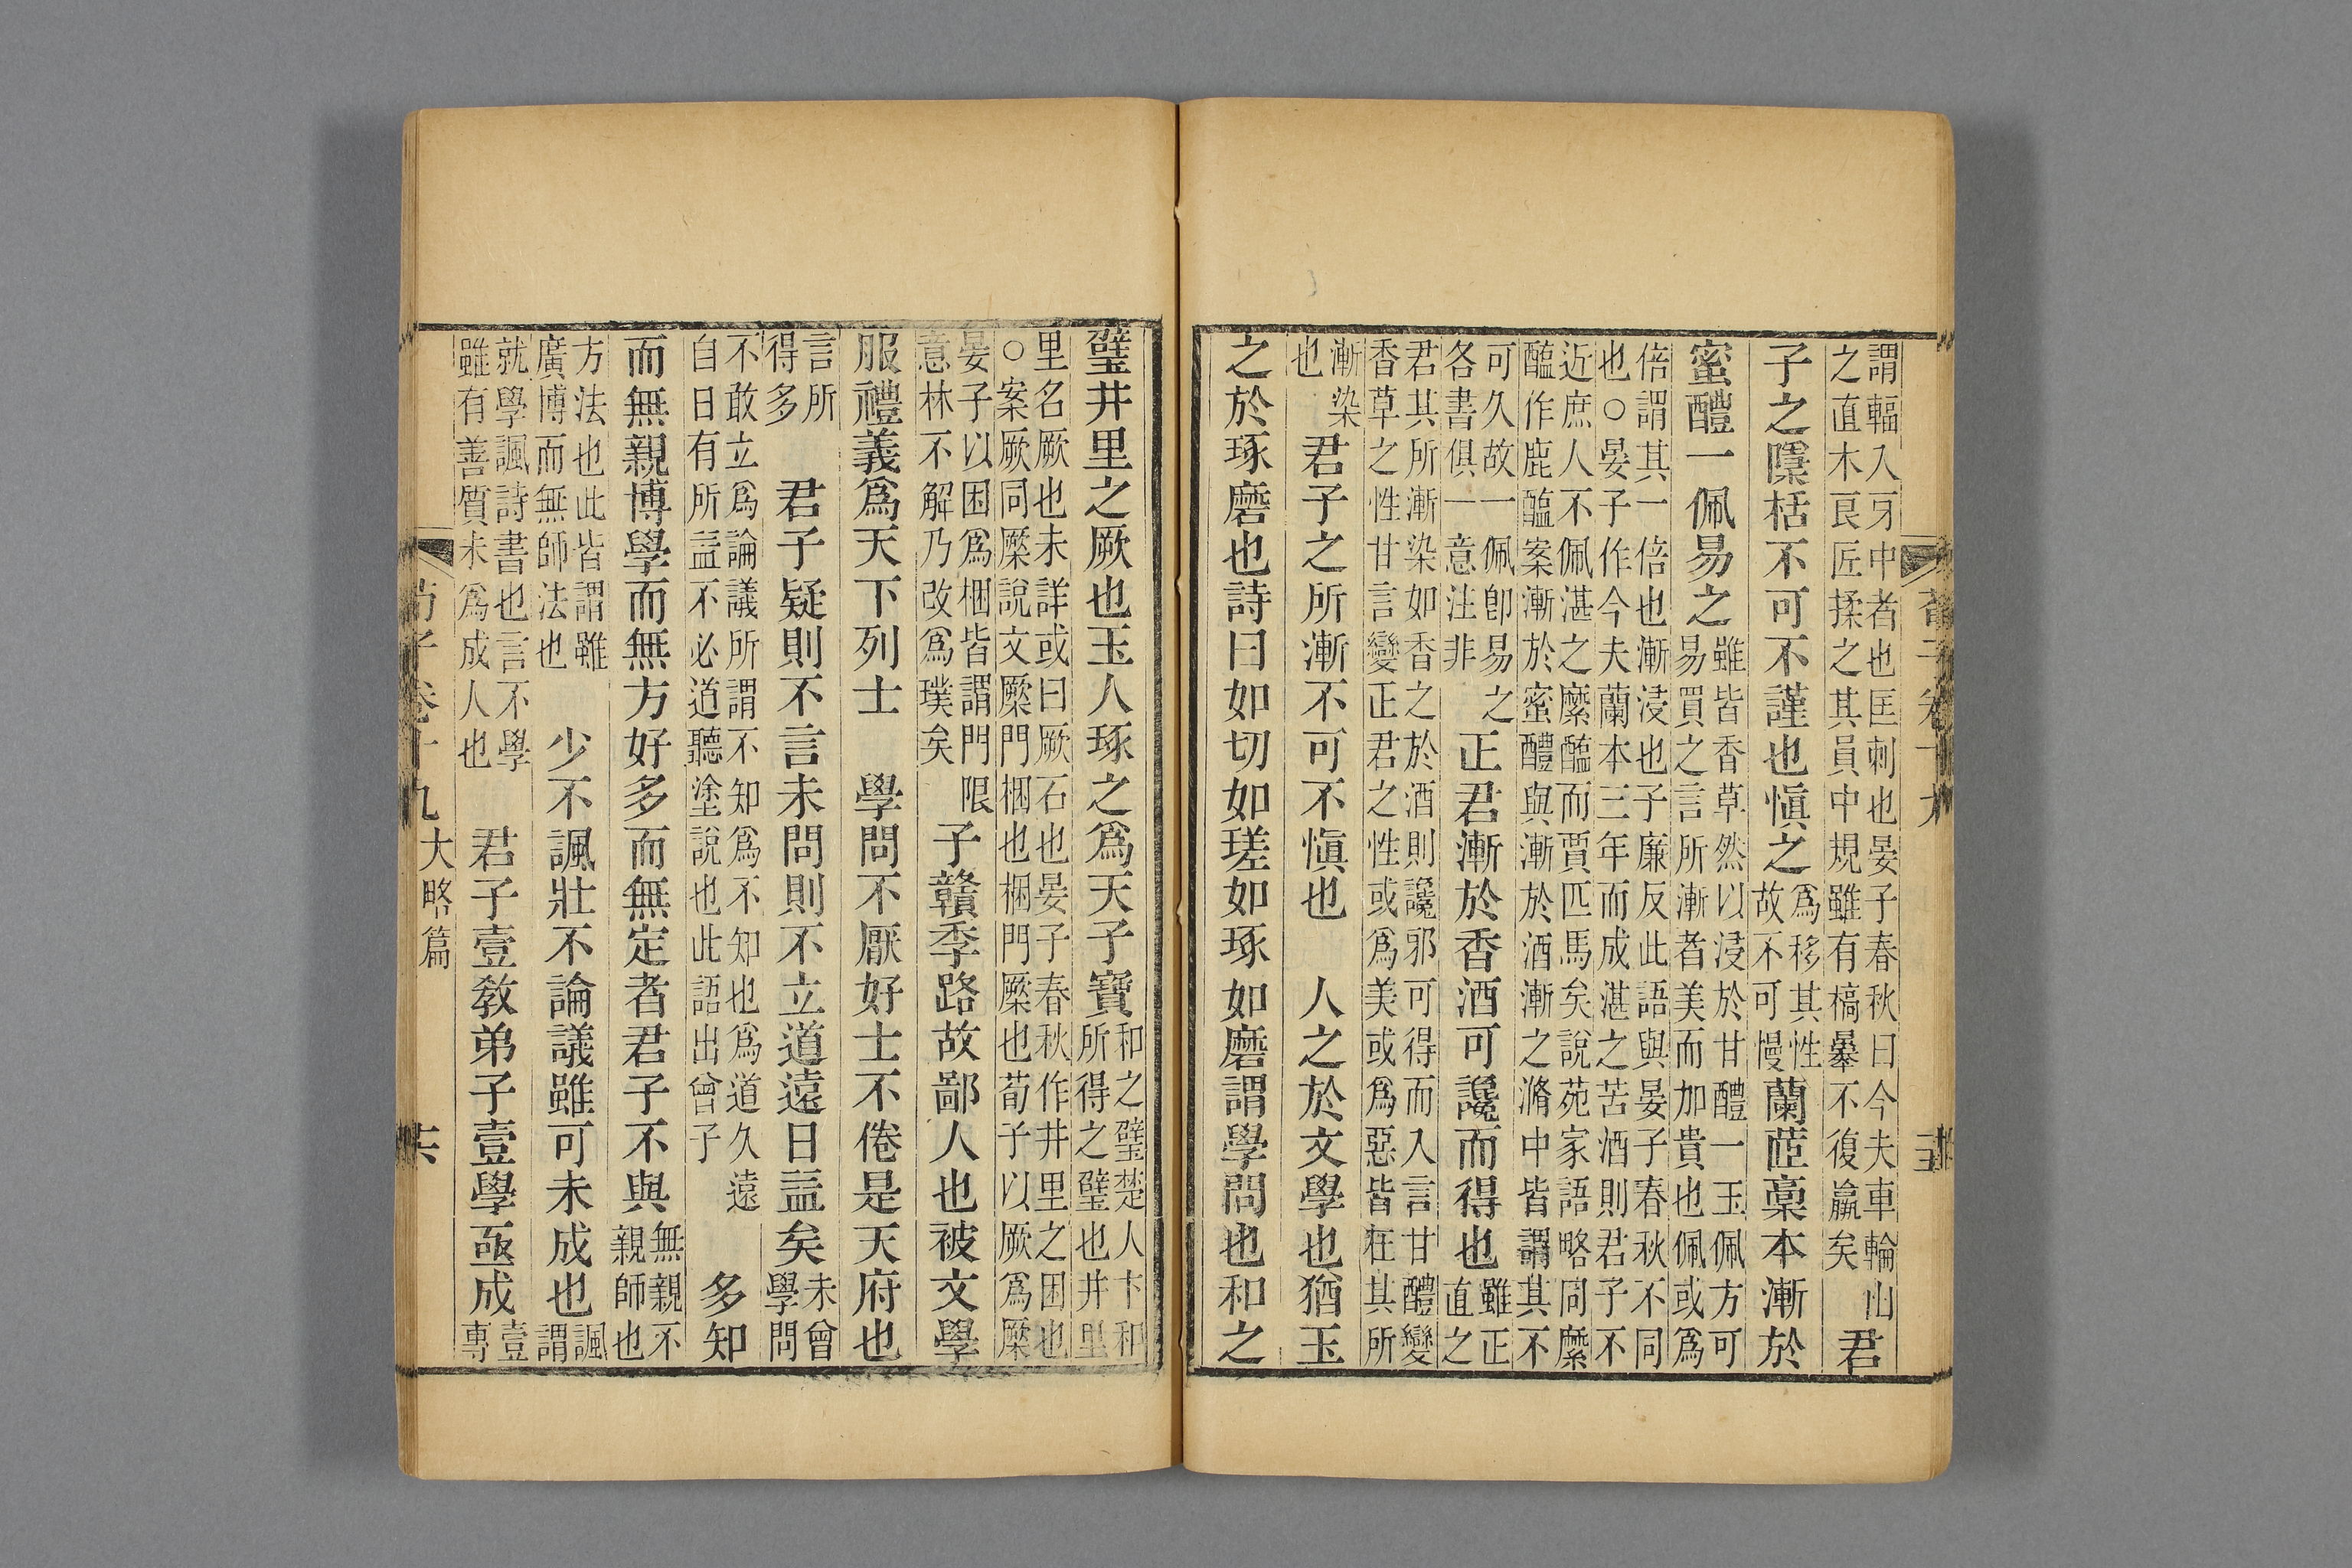 荀子卷十九 十五
謂輻入牙中者也匡刺也晏子春秋曰今夫車輪山
之直木良匠揉之其員中規雖有槁暴不復羸矣 君
子之檃栝不可不謹也愼之 爲移其性
故不可慢 蘭茝稾本漸於
蜜醴一佩易之 雖皆香草然以浸於甘醴一玉佩方可
易買之言所漸者美而加貴也佩或爲
倍謂其一倍也漸浸也子廉反此語與晏子春秋不同
也○晏子作今夫蘭本三年而成湛之苦酒則君子不
近庶人不佩湛之縻醢而賈匹馬矣說苑家語略同縻
醢作鹿醢案漸於蜜醴與漸於酒漸之滫中皆謂其不
可久故一佩卽易之
各書俱一意注非 正君漸於香酒可讒而得也 雖正
直之
君其所漸染如香之於酒則讒邪可得而入言甘醴變
香草之性甘言變正君之性或爲美或爲惡皆在其所
漸染
也 君子之所漸不可不愼也 人之於文學也猶玉
之於琢磨也詩曰如切如瑳如琢如磨謂學問也和之
璧井里之厥也玉人琢之爲天子寶 和之璧楚人卞和
所得之璧也井里
里名厥也未詳或曰厥石也晏子春秋作井里之困也
○案厥同橜說文橜門梱也梱門橜也荀子以厥爲橜
晏子以困爲梱皆謂門限
意林不解乃改爲璞矣 子贛季路故鄙人也被文學
服禮義爲天下列士 學問不厭好士不倦是天府也
言所
得多 君子疑則不言未問則不立道遠日益矣 未曾
學問
不敢立爲論議所謂不知爲不知也爲道久遠
自日有所益不必道聽塗說也此語出曾子 多知
而無親博學而無方好多而無定者君子不與 無親不
親師也
方法也此皆謂雖
廣博而無師法也 少不諷壯不論議雖可未成也 諷
謂
就學諷詩書也言不學
雖有善質未爲成人也 君子壹敎弟子壹學亟成 壹
專
荀子卷十九 大略篇 十六